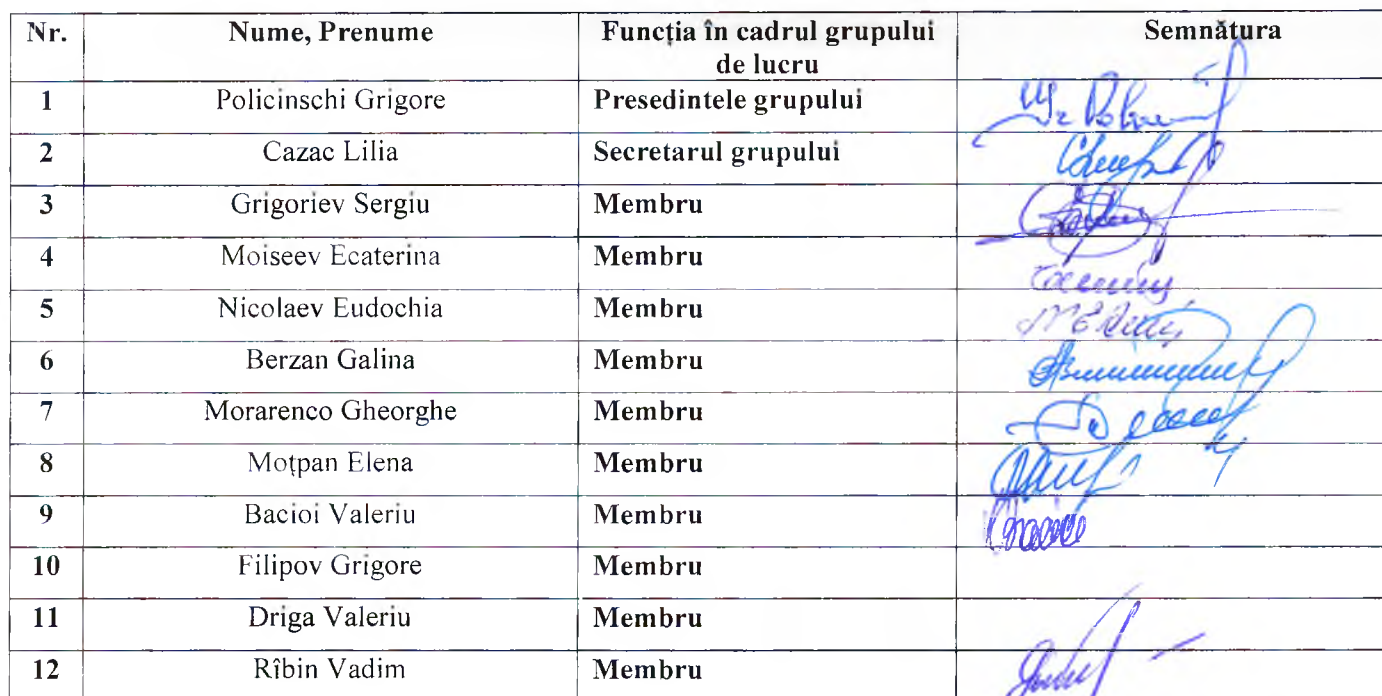 Nr. Nume, Prenume Funcția în cadrul grupului de lucru Semnătura
1 Policinschi Grigore Presedintele grupului
2 Cazac Lilia Secretarul grupului
3 Grigoriev Sergiu Membru
4 Moiseev Ecaterina Membru
5 Nicolaev Eudochia Membru
6 Berzan Galina Membru
7 Morarenco Gheorghe Membru
8 Moțpan Elena Membru
9 Bacioi Valeriu Membru
10 Filipov Grigore Membru
11 Driga Valeriu Membru
12 Rîbin Vadim Membru